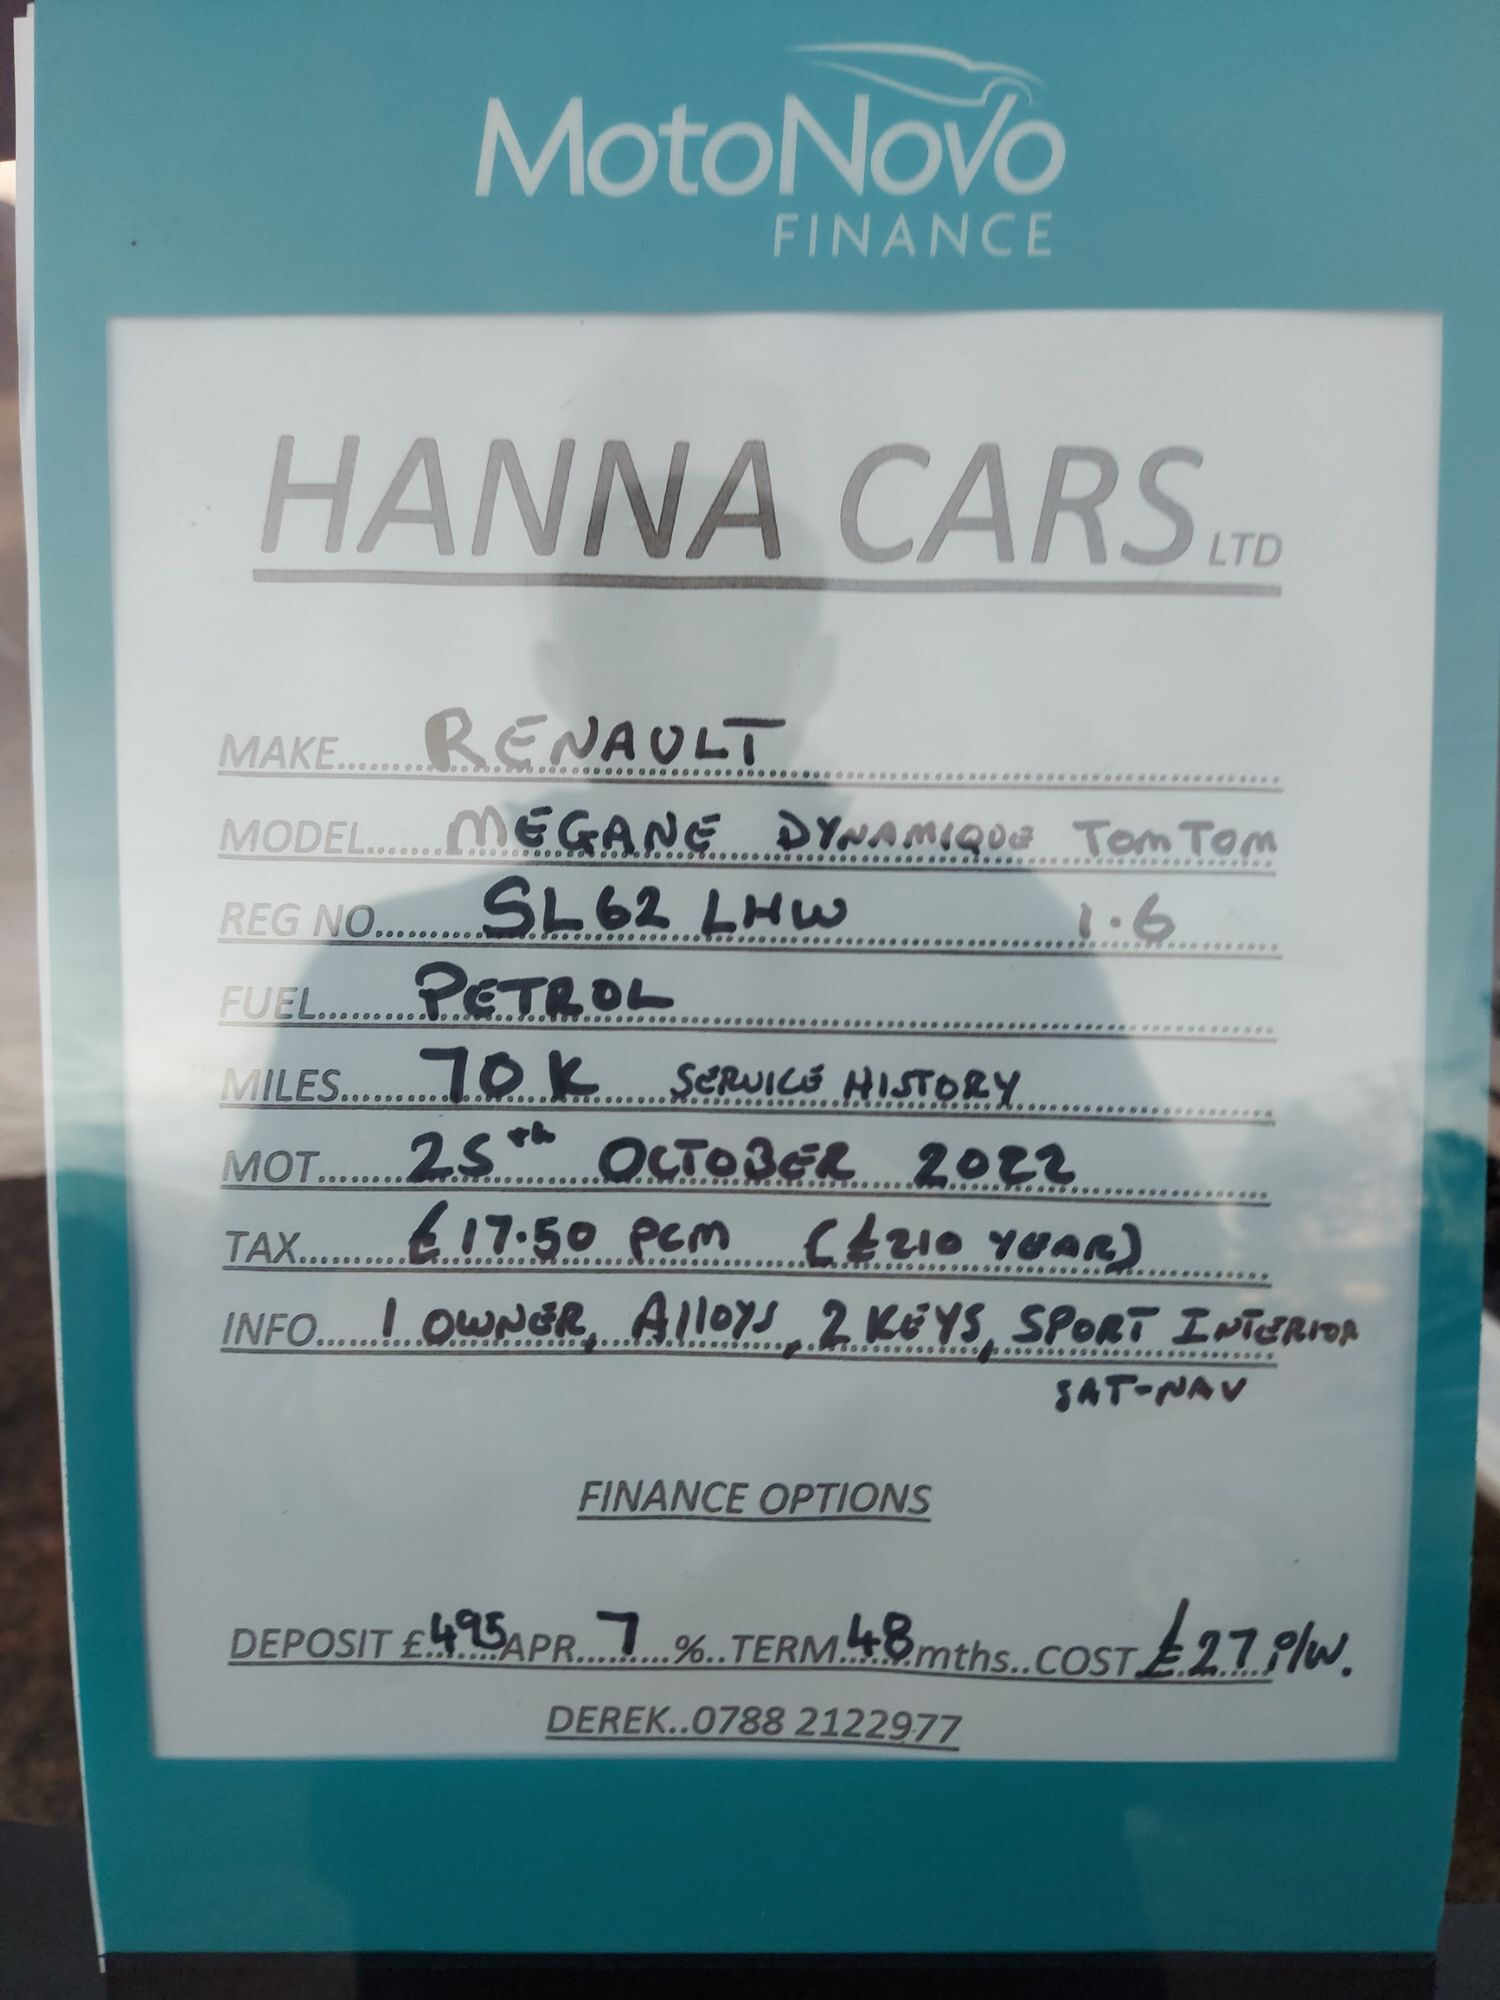 MotoNovo
FINANCE
HANNA CARS LTD
MAKE........RENAULT
MODEL.......MEGANE DYNAMIQUE TomTom
REG NO........SL62 LHW 1.6
FUEL.........PETROL
MILES.........70K SERVICE HISTORY
MOT......25th OCTOBER 2022
TAX.........£17.50 PCM (£210 YEAR)
INFO......1 OWNER, Alloys, 2 KEYS, SPORT INTERIOR
SAT-NAV
FINANCE OPTIONS
DEPOSIT £495 APR...7...%..TERM 48 mths..COST £27 P/W.
DEREK..0788 2122977